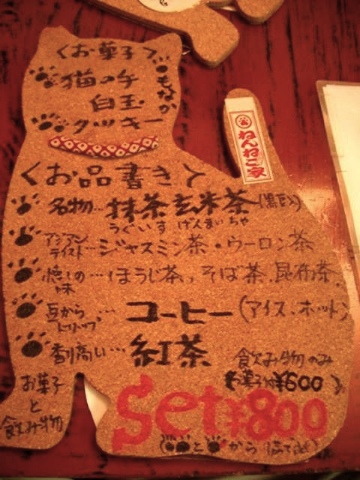 〈お菓子〉
猫の手
もなか
白玉
クッキー
ねんねこ家
〈お品書き〉
名物…抹茶玄米茶
うぐいす げんまいちゃ
アジアンテイスト…ジャスミン茶・ウーロン茶
懐しの味…ほうじ茶、そば茶、昆布茶
豆から…コーヒー(アイス・ホット)
香り高い…紅茶
飲み物のみ
¥600
お菓子と飲み物
Set¥800